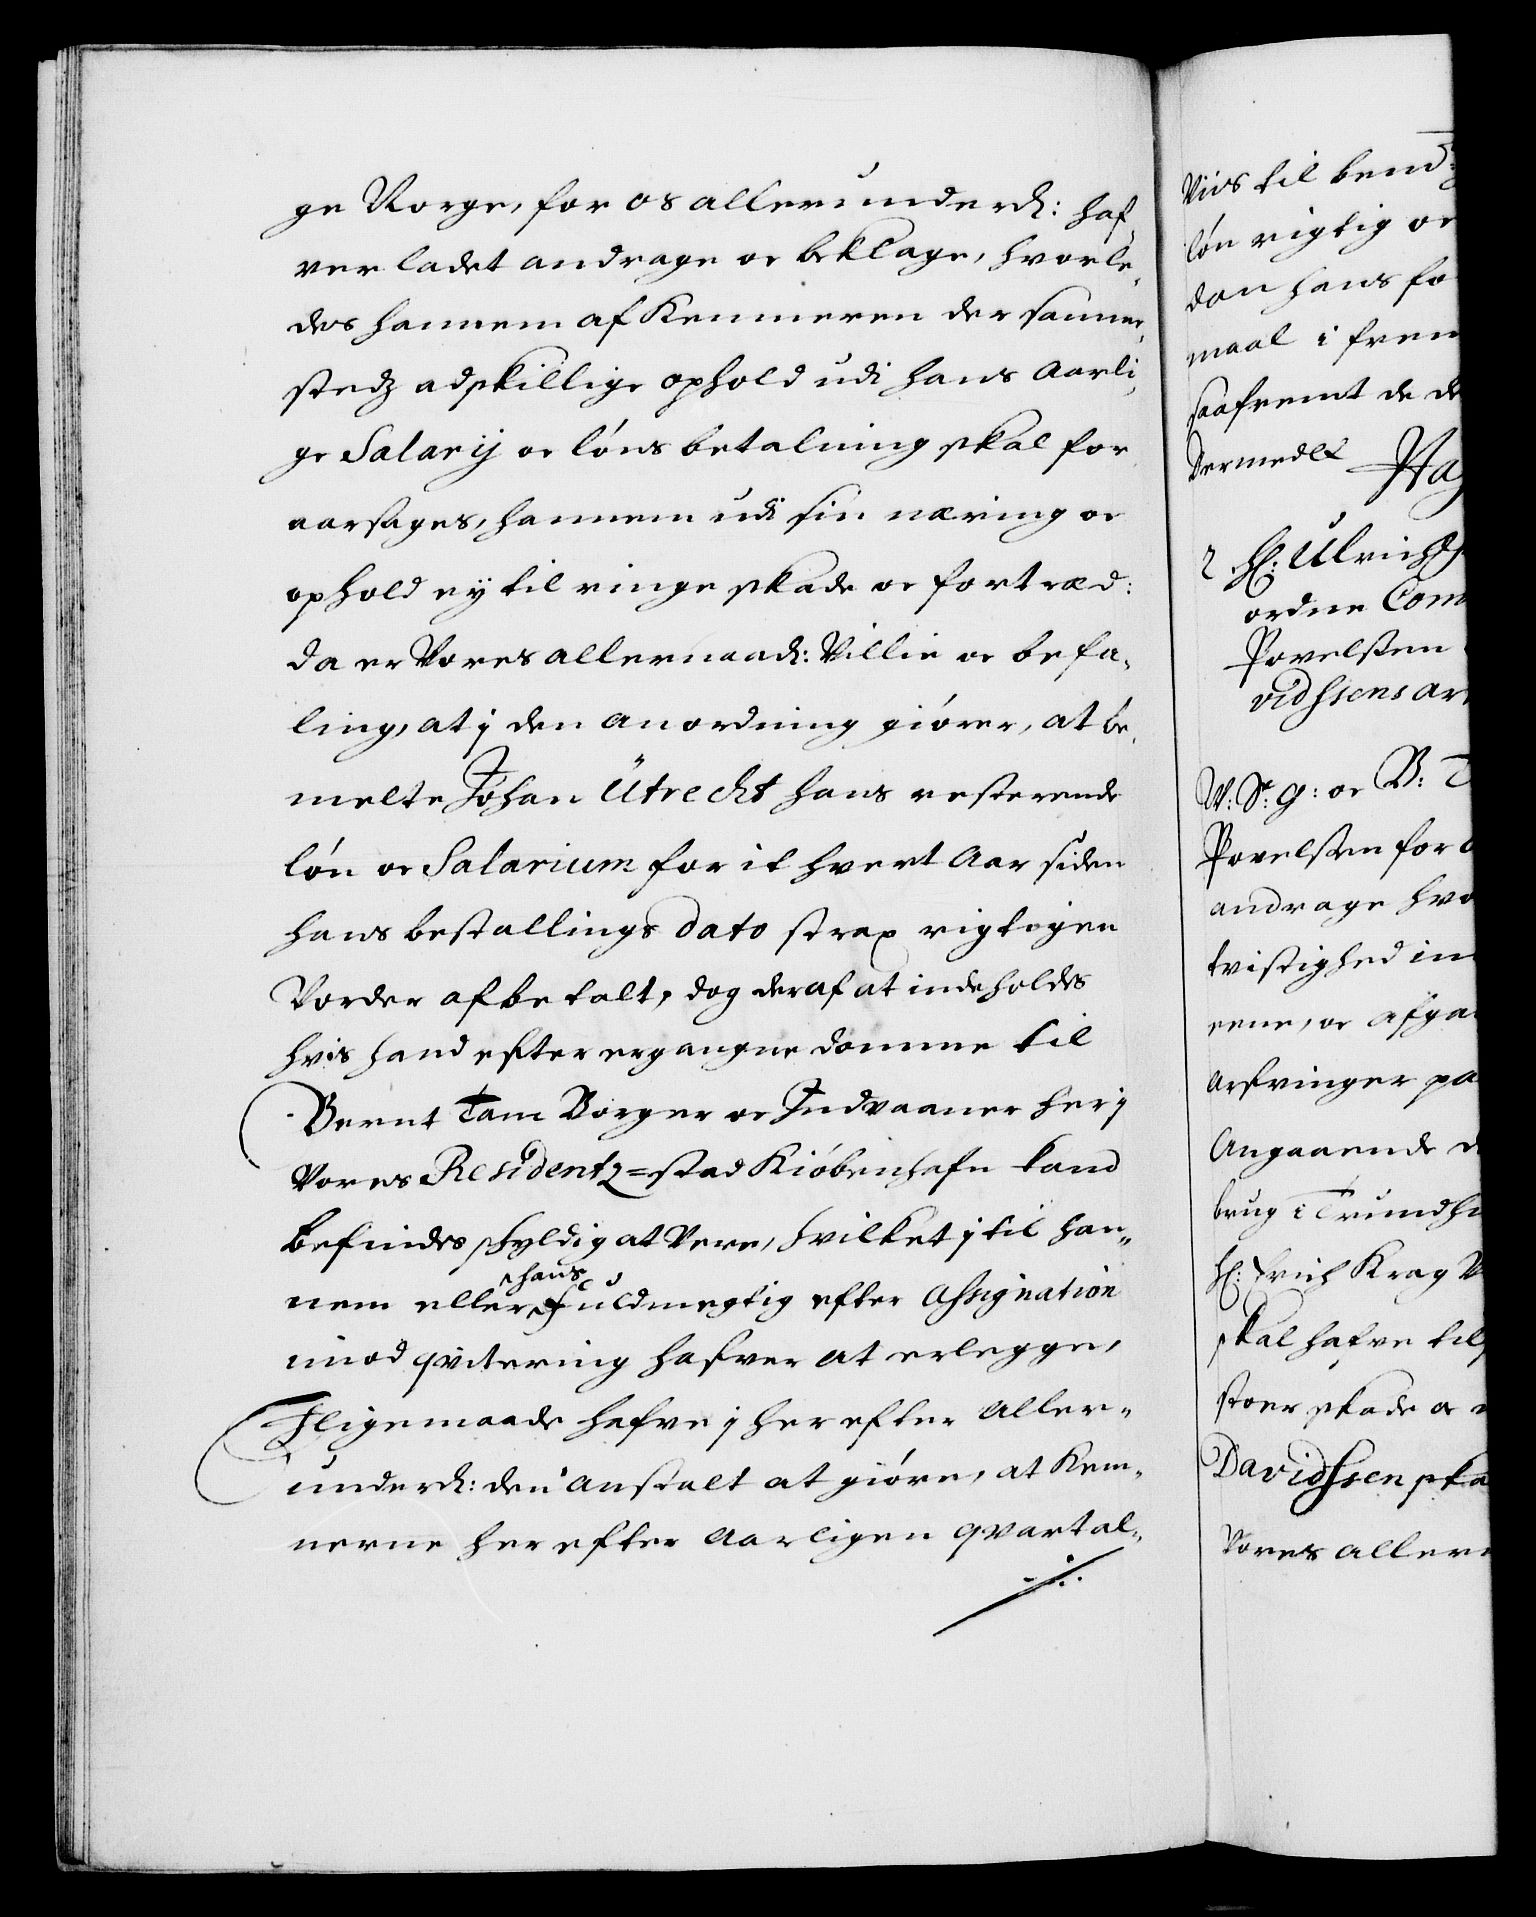 ge Norge, for os allerunderd: haf„
ver ladet andrage oc beklage, hvorle„
des hannem af Kemneren der samme„
stedz adskillige ophold udi hans Aarli„
ge Salarij oc löns betalning skal for
aarsages, hannem udi sin næring oc
ophold ey til ringe skade oc fortræd:
da er Vores allernaad: Villie oc befa„
ling, at j den anordning giörer, at be„
melte Johan Ütrecht hans resterende
lön oc Salarium for it hvert Aar siden
hans bestallings dato strax rigtigen
Vorder afbetalt, dog deraf at indeholdes
hvis hand efter ergangne domme til
Bernt Tam Borger oc Indvaaner her j
Vores Residentz=stad Kiöbenhafn kand
befindes skyldig at Vere, hvilket j til han„
nem eller hans fuldmegtig efter Assignation
imod qvitering hafver at erlegge,
Jligemaade hafve j her efter Aller„
underd: den anstalt at giöre, at Kem„
nerne her efter Aarligen qvartal„
Viis til bemd:
lön rigtig oc
dan hans fo
maal i frem
saafremt de de
Dermedt Haf
2 Hr: Ulrich F
ordne Com
Povelssen
vidssens ar
V: S: G: oc B: T
Povelssen for
andrage hvo
tvistighed im
eene, oc afga
Arfvinger pa
Angaaende
brug i Trundhi
Hr: Erich Krag
skal hafve til
stoer skade oc
Davidssen ska
Vores allern